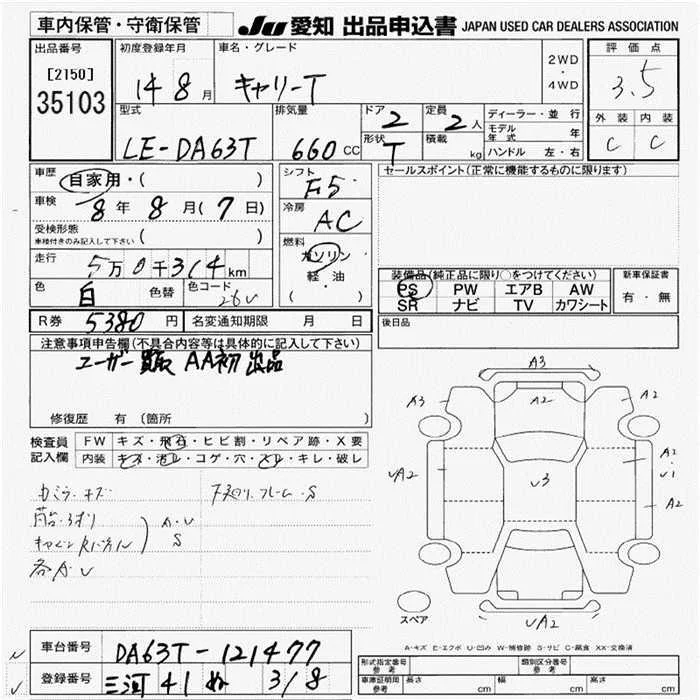 車内保管・守衛保管
JU 愛知 出品申込書 JAPAN USED CAR DEALERS ASSOCIATION
出品番号
[2150]
35103
初度登録年月
14 8 月
車名・グレード
キャリーT
2WD
・
4WD
評価点
3.5
外装 内装
C C
型式
LE-DA63T
排気量
660 CC
ドア
2
定員
2 人
形状
T
積載
kg
ディーラー・並行
モデル年式 年
ハンドル 左・右
車歴
自家用・( )
車検
8 年 8 月(7 日)
受検形態
車検付きのみ記入して下さい ( )
走行
5万0千314 km
色
白
色替
色コード
26U
シフト
F5
冷房
AC
燃料
ガソリン
・
軽・油
( )
セールスポイント(正常に機能するものに限ります)
装備品(純正品に限り○をつけてください)
PS PW エアB AW
SR ナビ TV カワシート
新車保証書
有・無
R券 5380 円 名変通知期限 月 日
後日品
注意事項申告欄(不具合内容等は具体的に記入して下さい)
ユーザー買取 AA初出品
修復歴 有 (箇所 )
検査員
記入欄
FW キズ・飛石・ヒビ割・リペア跡・X要
内装 キズ・汚レ・コゲ・穴・スレ・キレ・破レ
下廻り フレーム・S
A・U
S
各A U
A3
A3
A2
A2
UA2
U3
A1
U1
A2
UA2
スペア
A-キズ E-エクボ U-凹み W-補修跡 S-サビ C-腐食 XX-交換済
車台番号 DA63T-121477
登録番号 三河 41 ぬ 318
型式指定番号
参考
類別区分番号
参考
車庫証明用
参考
長さ cm 幅 cm 高さ cm